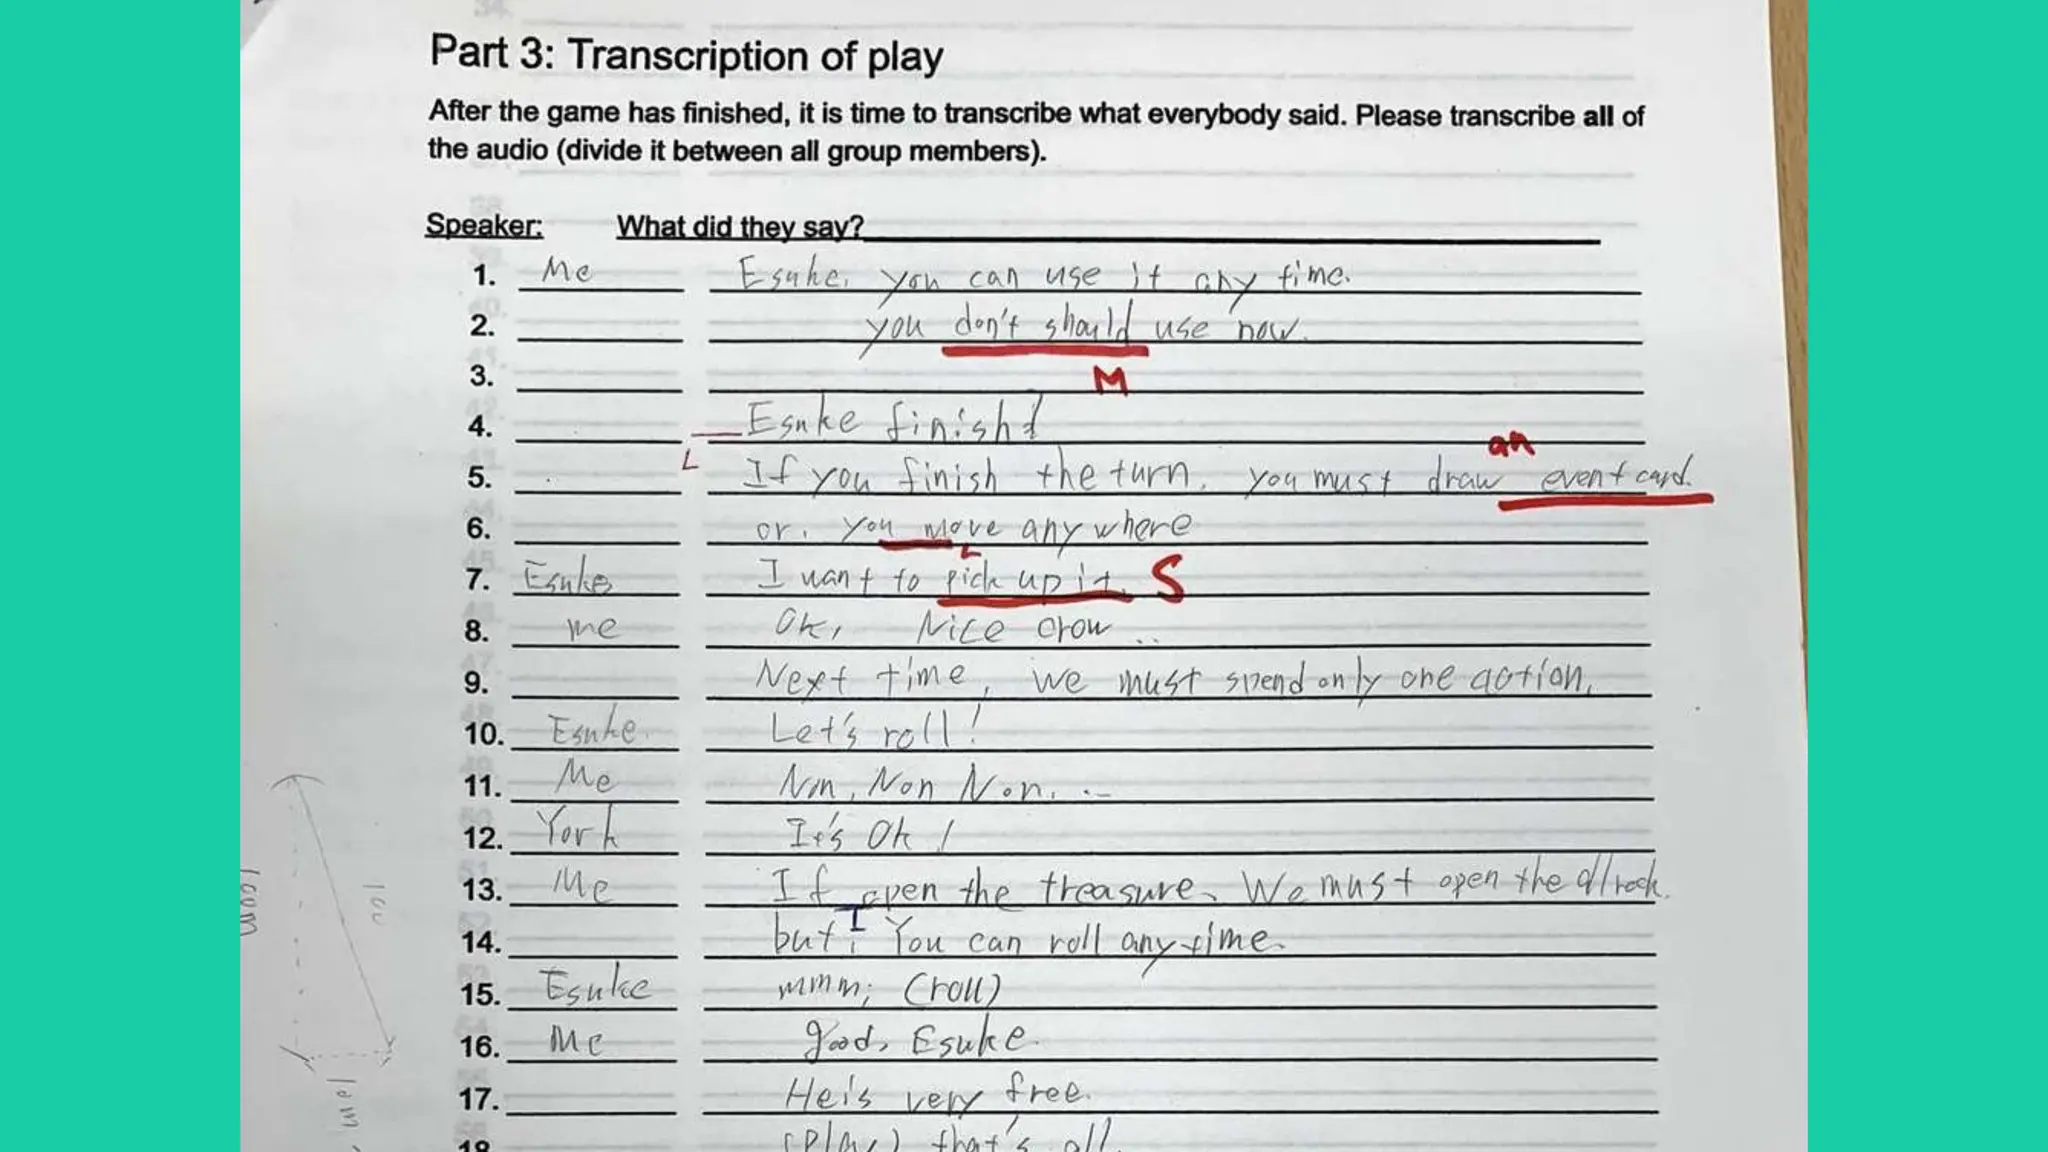 Part 3: Transcription of play
After the game has finished, it is time to transcribe what everybody said. Please transcribe all of
the audio (divide it between all group members).
Speaker: What did they say?
1. Me Esuke, you can use it any time.
2. you don't should use now.
M
3.
4. Esuke finish
an
L
5. If you finish the turn, you must draw event card.
6. or, you move anywhere
L
7. Esuke I want to pick up it. S
8. me Ok, Nice crow ..
9. Next time, we must spend only one action,
10. Esuke. Let's roll!
11. Me Nm, Non Non. ..
12. York It's Ok!
13. Me If open the treasure, We must open the
I
14. but, You can roll anytime.
15. Esuke mmm; (roll)
16. Me good, Esuke.
17. He's very free.
18 (Play) that's all.